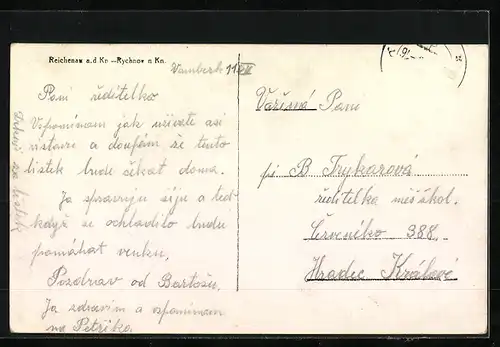 Reichenau a.d Kn.-Rychnov n Kn.
Vamberk 11.
Paní ředitelko
Vzpomínám jak užíváte asi
a doufám že tento
lístek bude čekat doma.
Ja spravuju šiju a teď
když se ochladilo budu
pomáhat venku.
Pozdrav od Bartošů.
Ja zdravím a vzpomínám
na Petříka.
Vážená Paní
pí B Trykarová
ředitelka měšť. škol.
Červeného 388.
Hradec Králové